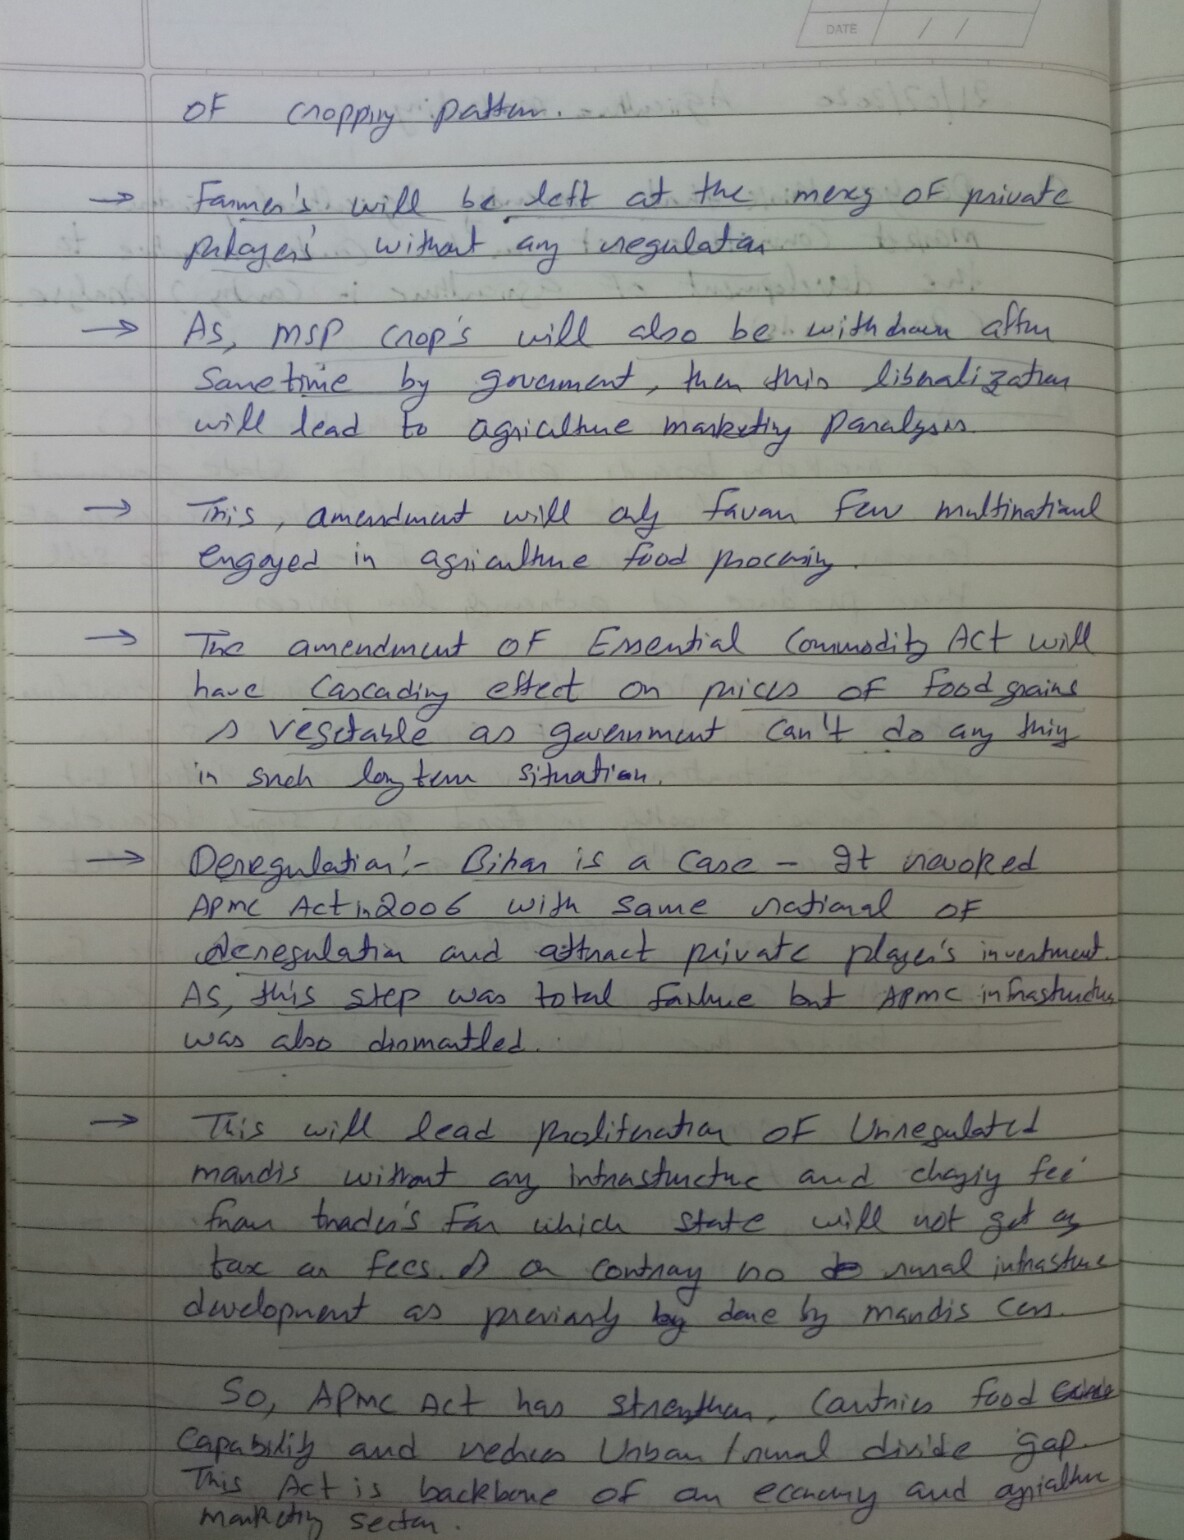 DATE / /
OF cropping pattern.
→ Farmer's will be left at the mercy OF private
players' without any regulation
→ As, MSP crop's will also be withdrawn after
sometime by government, then this liberalization
will lead to agriculture marketing paralysis.
→ This, amendment will only favour few multinational
engaged in agriculture food processing.
→ The amendment OF Essential Commodity Act will
have cascading effect on prices of food grains
& vegetable as government can't do any thing
in such long term situation.
→ Deregulation:- Bihar is a case - It revoked
APMC Act in 2006 with same rational OF
deregulation and attract private player's investment.
As, this step was total failure but APMC infrastructure
was also dismantled.
→ This will lead proliferation OF Unregulated
mandis without any infrastructure and charging fee
from trader's for which state will not get any
tax or fees. & on contrary no rural infrastructure
development as previously by done by mandis cess.
So, APMC Act has strengthen, Countries food
capability and reduces Urban/rural divide gap.
This Act is backbone of our economy and agriculture
marketing sector.